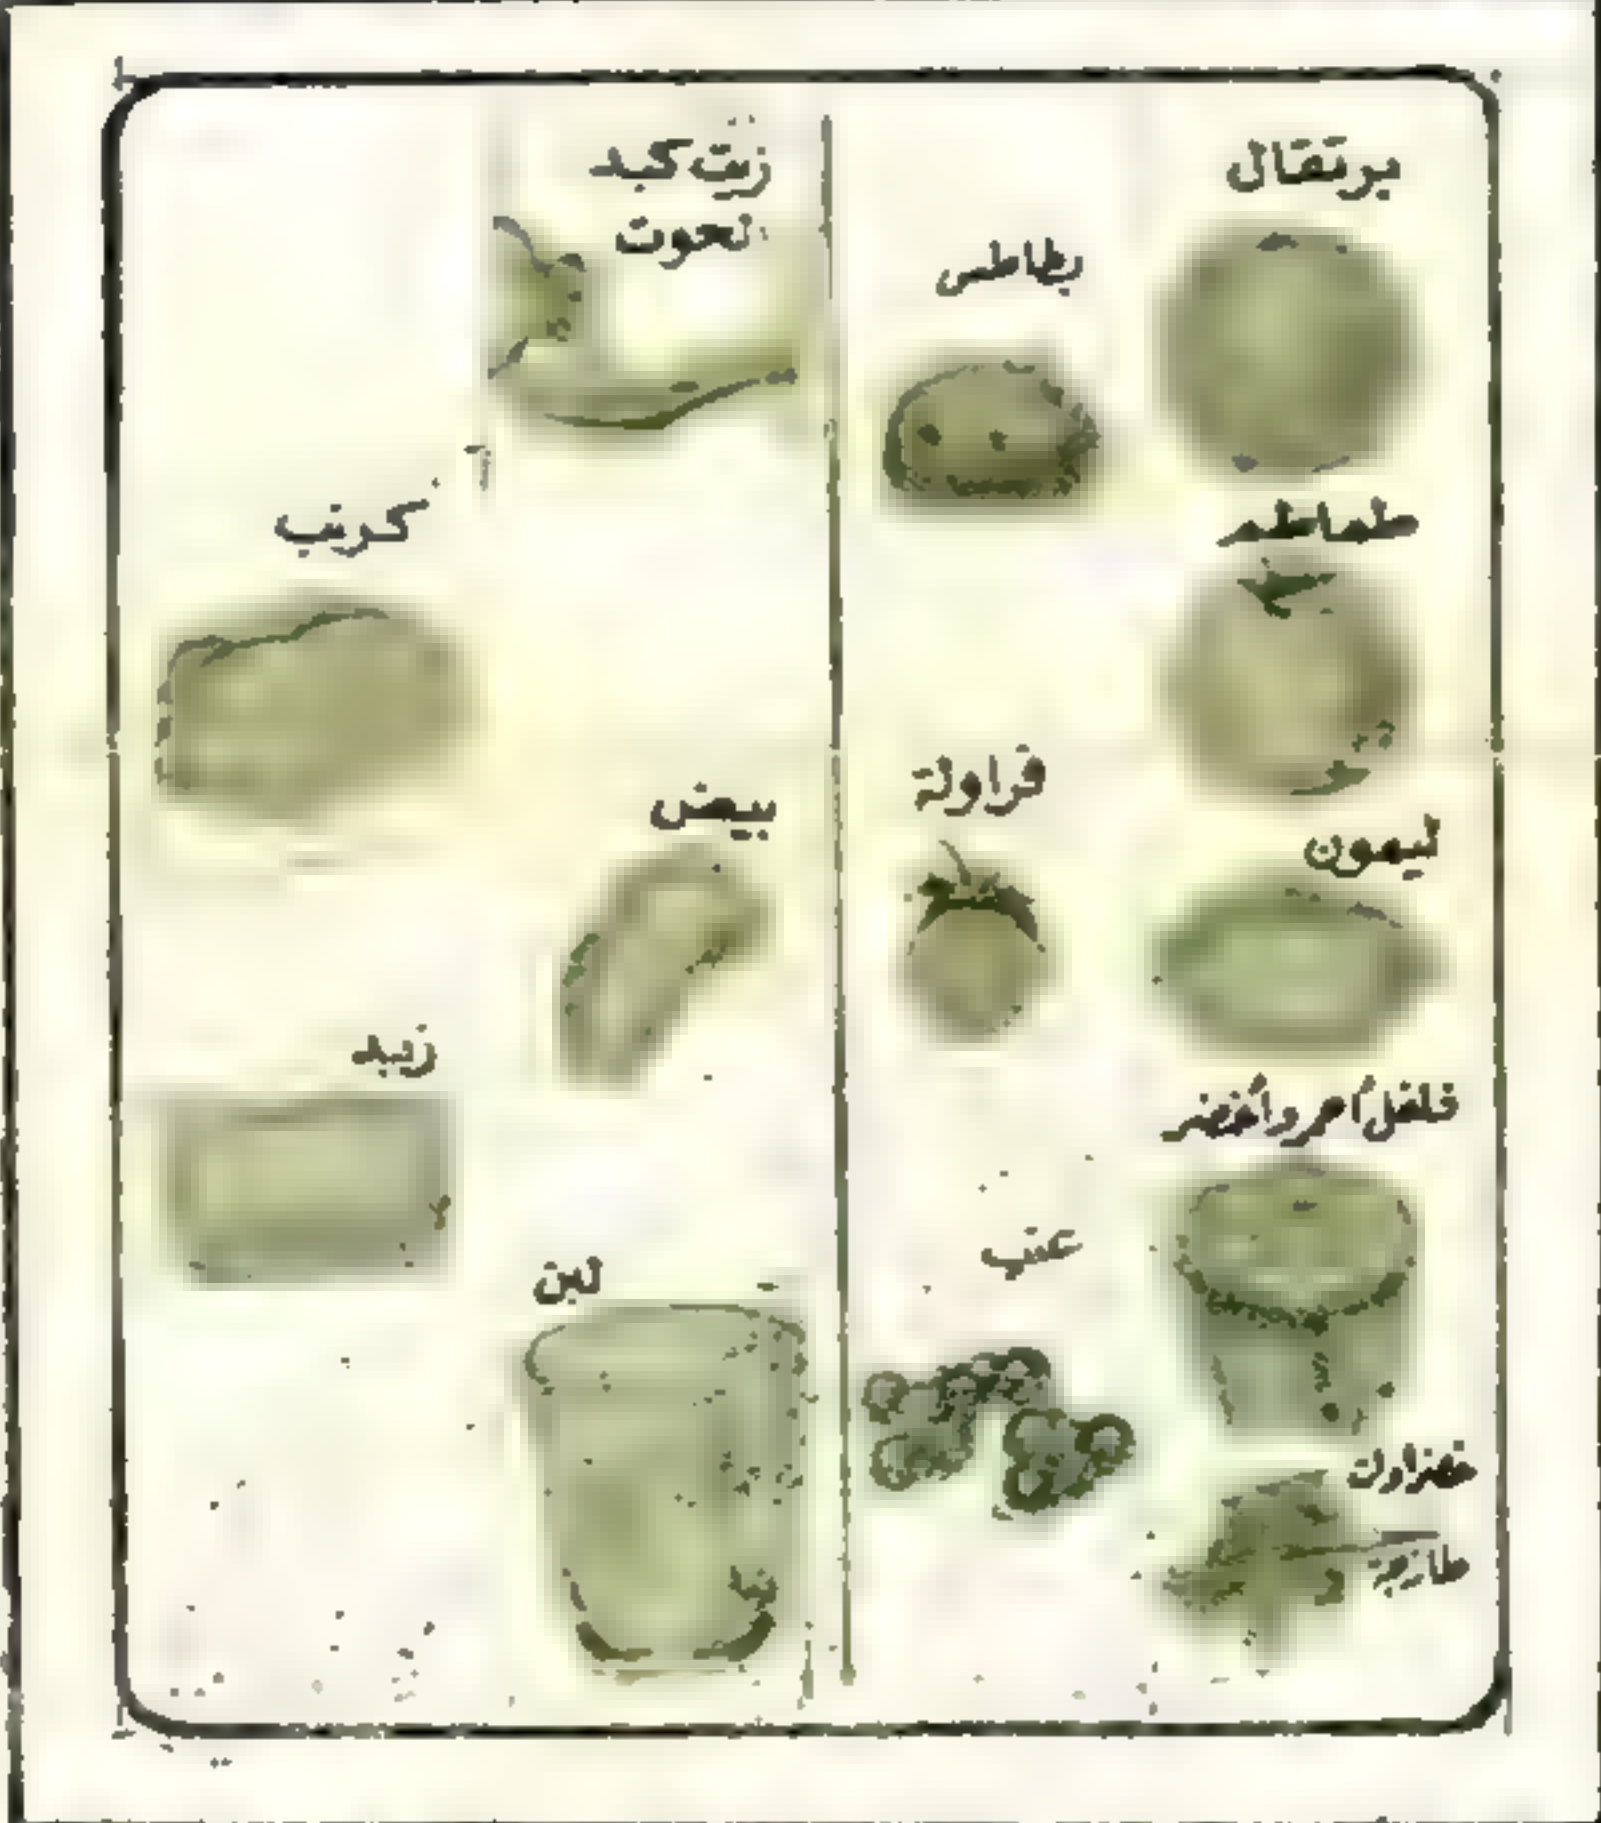 برتقال
بطاطس
طماطم
فراولة
ليمون
فلفل أحمر وأخضر
عنب
خضراوات
طازجة
زيت كبد
الحوت
كرنب
بيض
زبد
لبن